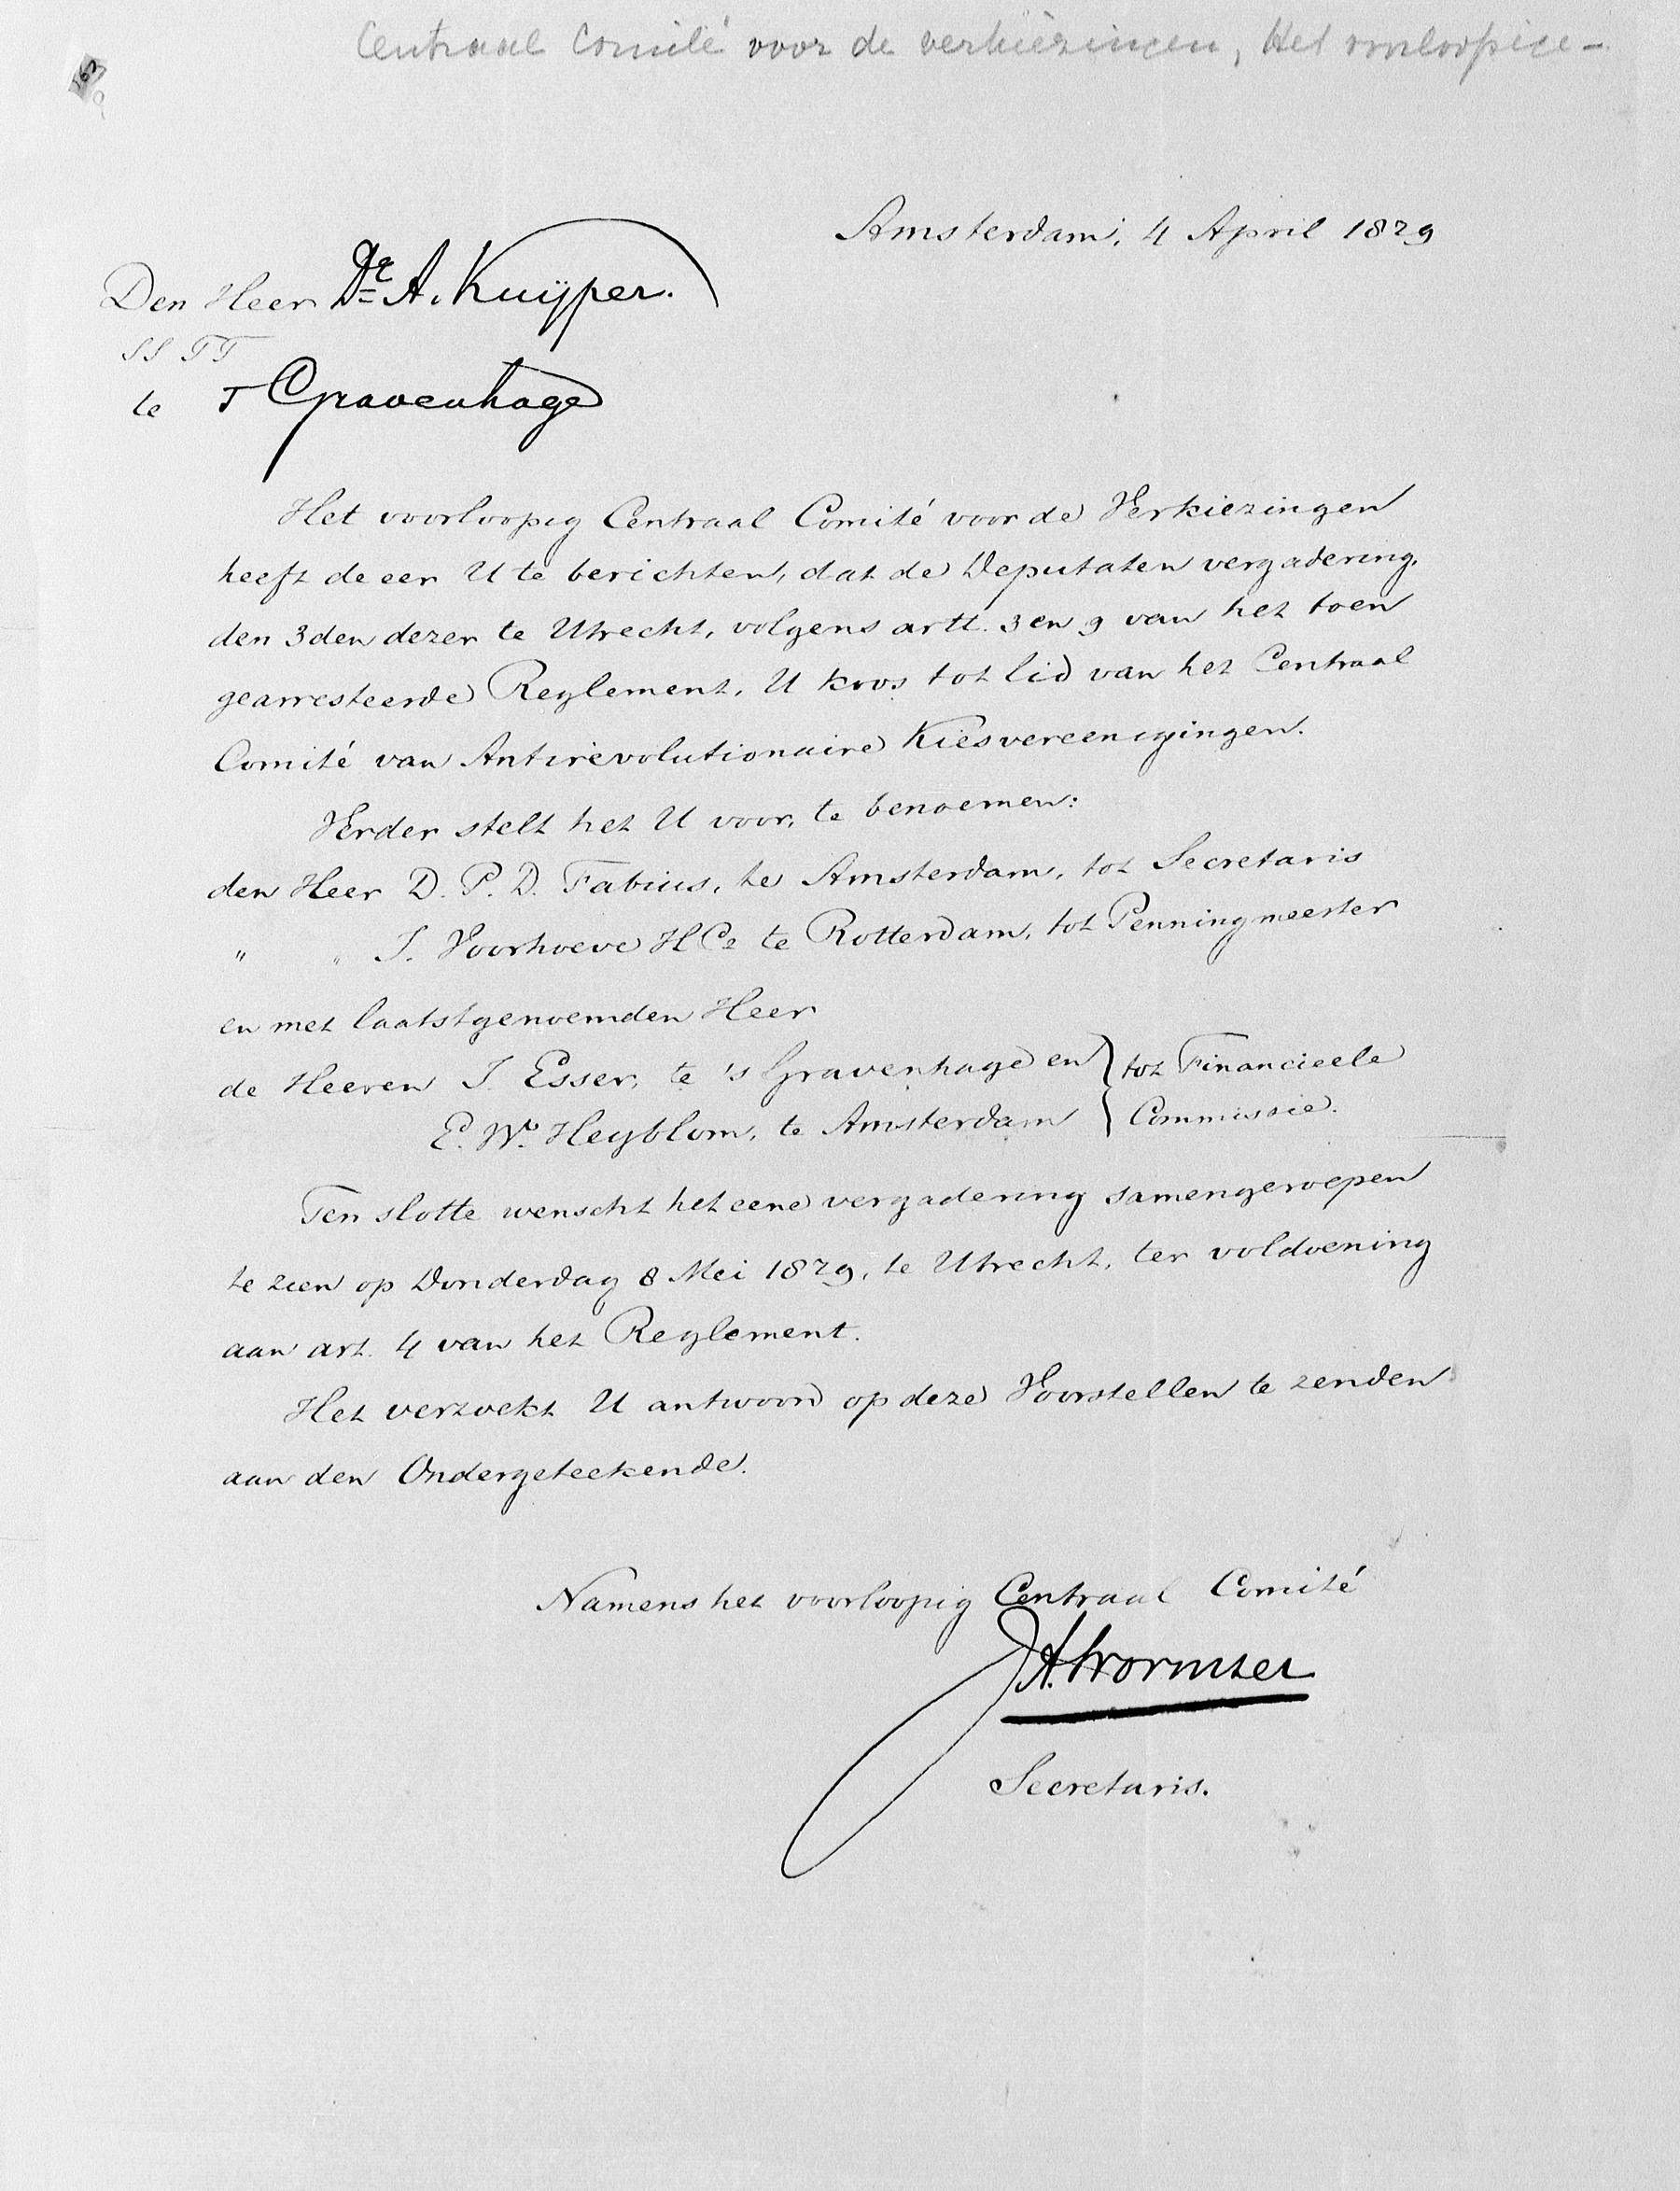 Centraal Comité voor de verkiezingen, Het voorloopige -
Amsterdam, 4 April 1879
Den Heer Dr A. Kuijper.
SS TT
te s Gravenhage
Het voorloopig Centraal Comité voor de Verkiezingen
heeft de eer U te berichten, dat de Deputaten vergadering,
den 3den dezer te Utrecht, volgens artt. 3 en 9 van het toen
gearresteerde Reglement, U koos tot lid van het Centraal
Comité van Antirevolutionaire Kiesvereenigingen.
Verder stelt het U voor, te benoemen:
den Heer D. P. D. Fabius, te Amsterdam, tot Secretaris
" " J. Voorhoeve HCz te Rotterdam, tot Penningmeester
en met laatstgenoemden Heer
de Heeren J. Esser, te 's Gravenhage en } tot Financieele
E. Wo. Heyblom, te Amsterdam } Commissie.
Ten slotte wenscht het eene vergadering samengeroepen
te zien op Donderdag 8 Mei 1879, te Utrecht, ter voldoening
aan art. 4 van het Reglement.
Het verzoekt U antwoord op deze Voorstellen te zenden
aan den Ondergeteekende.
Namens het voorloopig Centraal Comité
JA. Wormser
Secretaris.